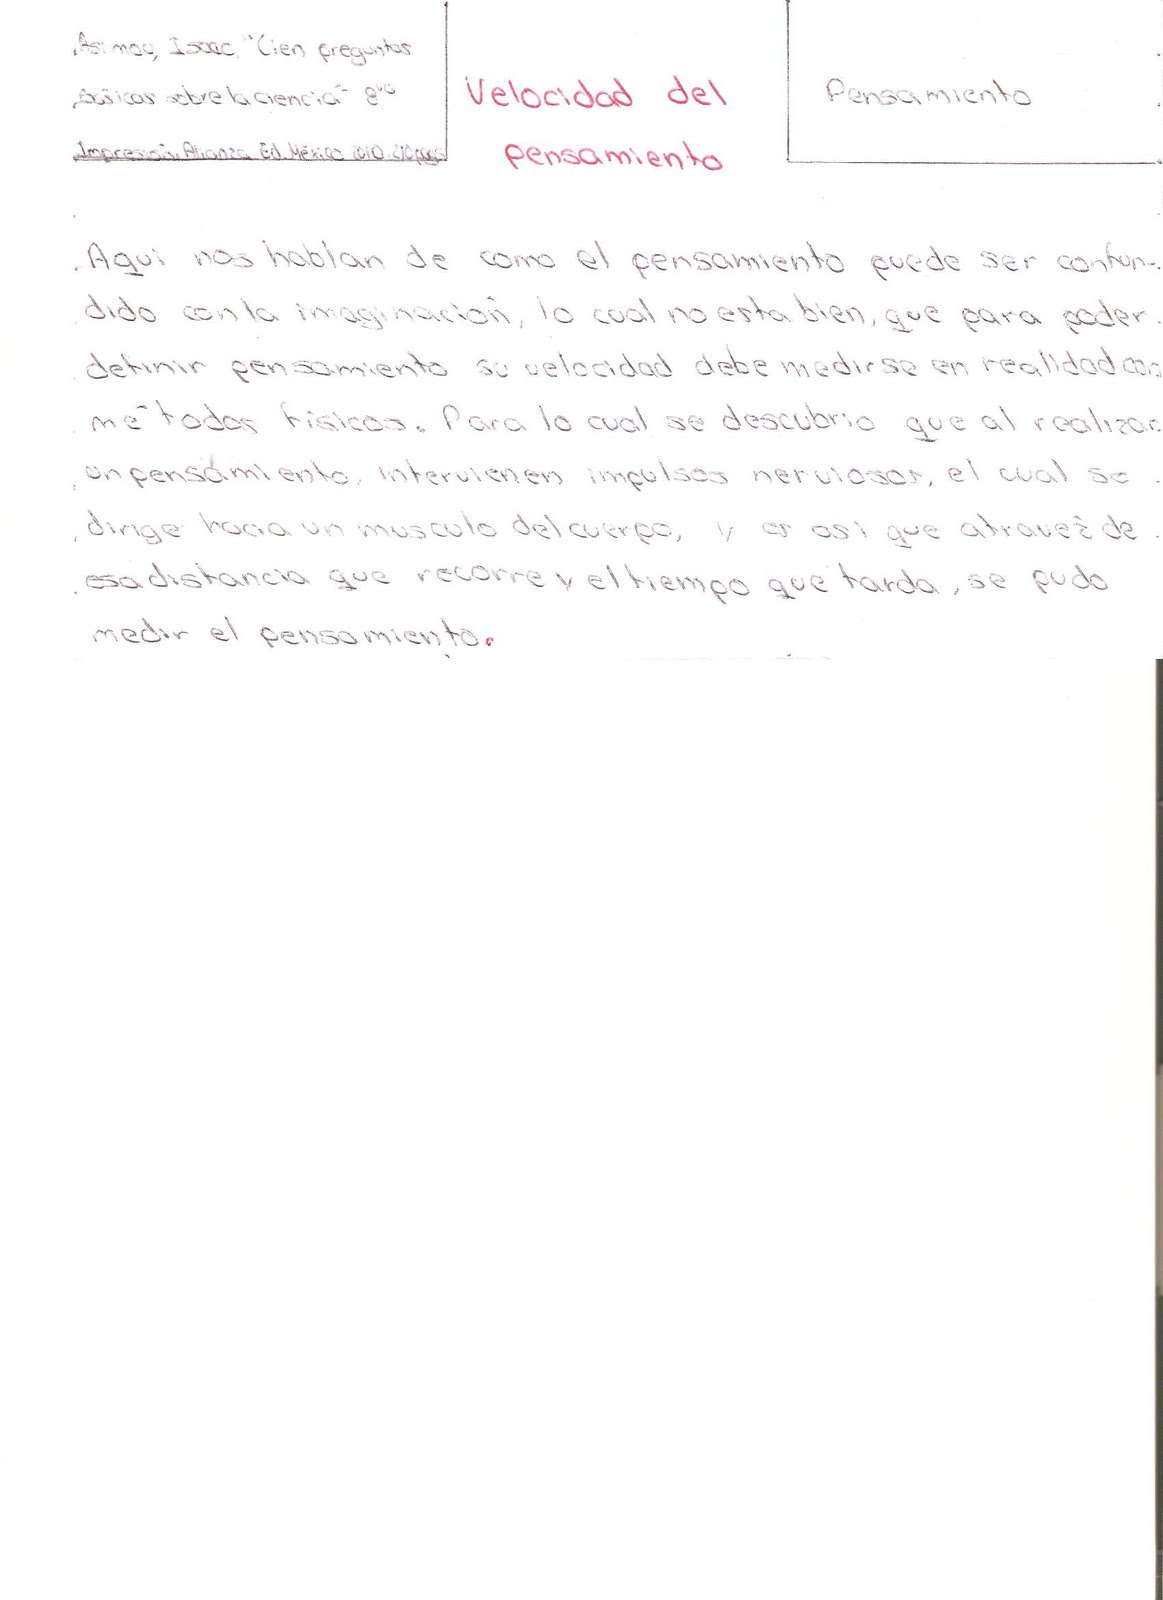 Asimov, Isaac, "Cien preguntas
básicas sobre la ciencia" 8va
Impresión. Alianza Ed. México 2010. 210 pags
Velocidad del
pensamiento
Pensamiento
Aqui nos hablan de como el pensamiento puede ser confun-
dido con la imaginación, lo cual no esta bien, que para poder
definir pensamiento su velocidad debe medirse en realidad con
métodos fisicos. Para lo cual se descubrio que al realizar
un pensamiento, intervienen impulsos nerviosos, el cual se
dirige hacia un musculo del cuerpo, y es asi que atravez de
esa distancia que recorre y el tiempo que tarda, se pudo
medir el pensamiento.